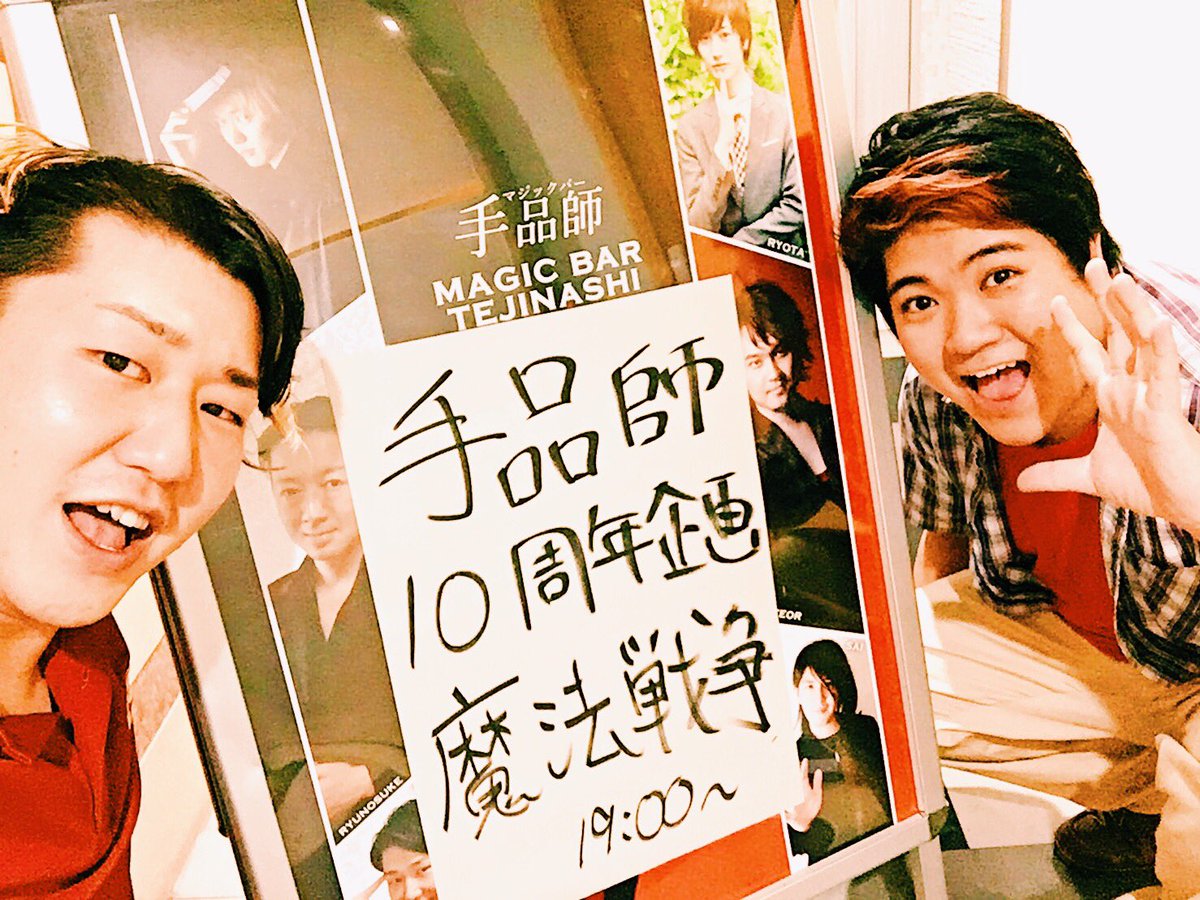 マジックバー
手品師
MAGIC BAR
TEJINASHI
手品師
10周年企画
魔法戦争
19:00〜
RYOTA
RYUNOSUKE